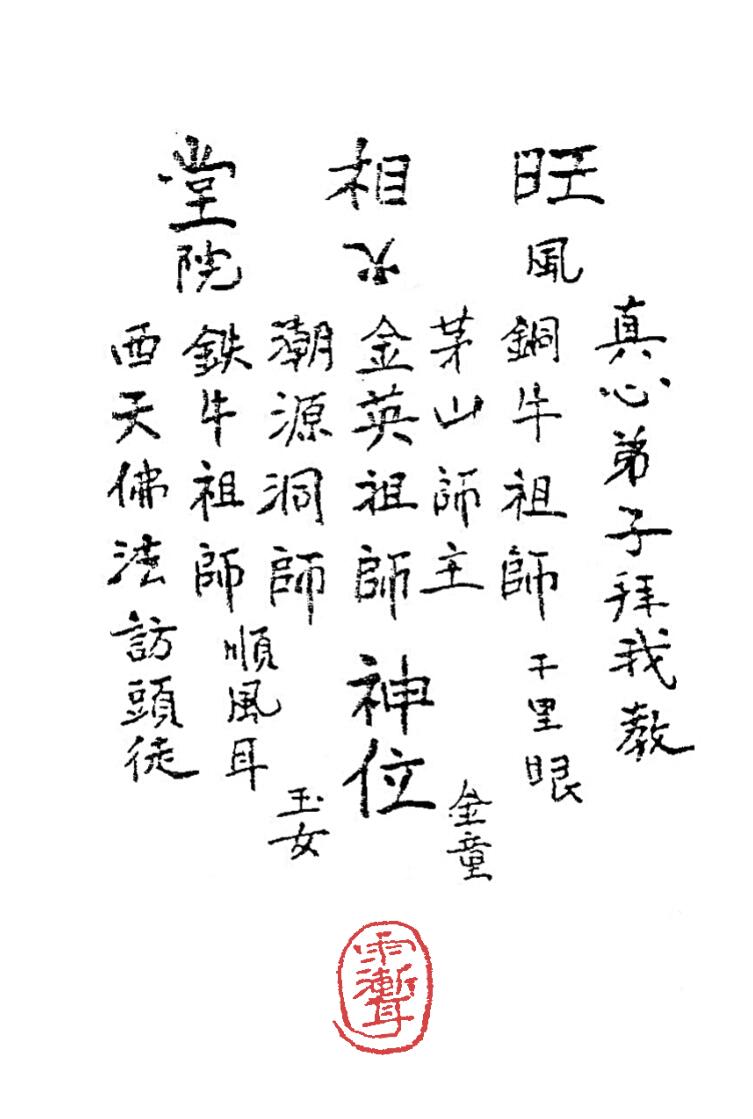 旺相堂
風火院
真心弟子拜我教
銅牛祖師
千里眼
茅山師主
金童
金英祖師神位
潮源洞師
玉女
鉄牛祖師
順風耳
西天佛法訪頭徒